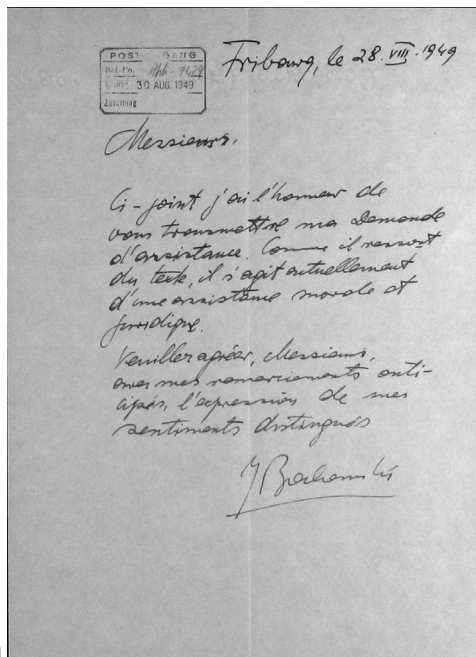 POST GANG
30. AUG. 1949
Zuteilung
Fribourg, le 28. VIII. 1949
Messieurs,
Ci-joint j'ai l'honneur de
vous transmettre ma Demande
d'assistance. Comme il ressort
du texte, il s'agit actuellement
d'une assistance morale et
juridique.
Veuillez agréer, Messieurs,
avec mes remerciements anti-
cipés, l'expression de mes
sentiments distingués